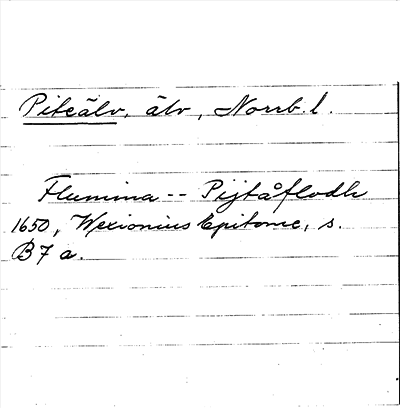 Piteälv, älv, Norrb. l.
Flumina -- Pijtåflodh
1650, Wexionius Epitome, s.
B7a.